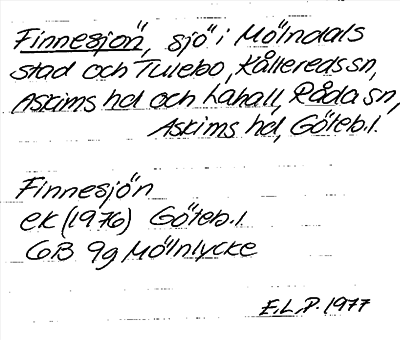 Finnesjön, sjö i Mölndals
stad och Tulebo, Kållereds sn,
Askims hd och Lahall, Råda sn,
Askims hd, Göteb.l.
Finnesjön
ek (1976) Göteb.l.
6B 9g Mölnlycke
E.L.P. 1977